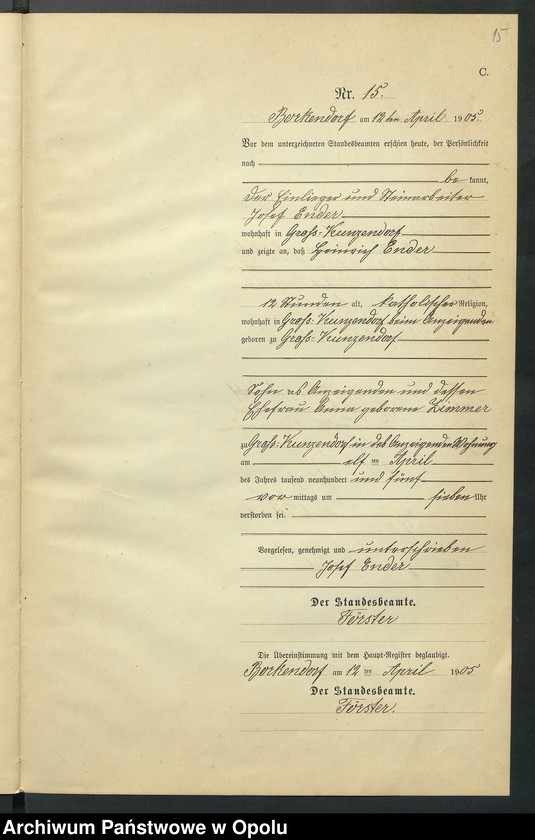 15
C.
Nr. 15.
Borkendorf am 12ten April 1905.
Vor dem unterzeichneten Standesbeamten erschien heute, der Persönlichkeit
nach
be kannt,
der Einlieger und Steinarbeiter
Josef Ender
wohnhaft in Groß-Kunzendorf
und zeigte an, daß Heinrich Ender
12 Stunden alt, katholischer Religion,
wohnhaft in Groß-Kunzendorf beim Anzeigenden
geboren zu Groß-Kunzendorf
Sohn des Anzeigenden und dessen
Ehefrau Anna geborene Zimmer
zu Groß-Kunzendorf in des Anzeigenden Wohnung
am elf ten April
des Jahres tausend neunhundert und fünf
vor mittags um sieben Uhr
verstorben sei.
Vorgelesen, genehmigt und unterschrieben
Josef Ender
Der Standesbeamte.
Förster
Die Übereinstimmung mit dem Haupt-Register beglaubigt.
Borkendorf am 12 ten April 1905
Der Standesbeamte.
Förster.
Archiwum Państwowe w Opolu